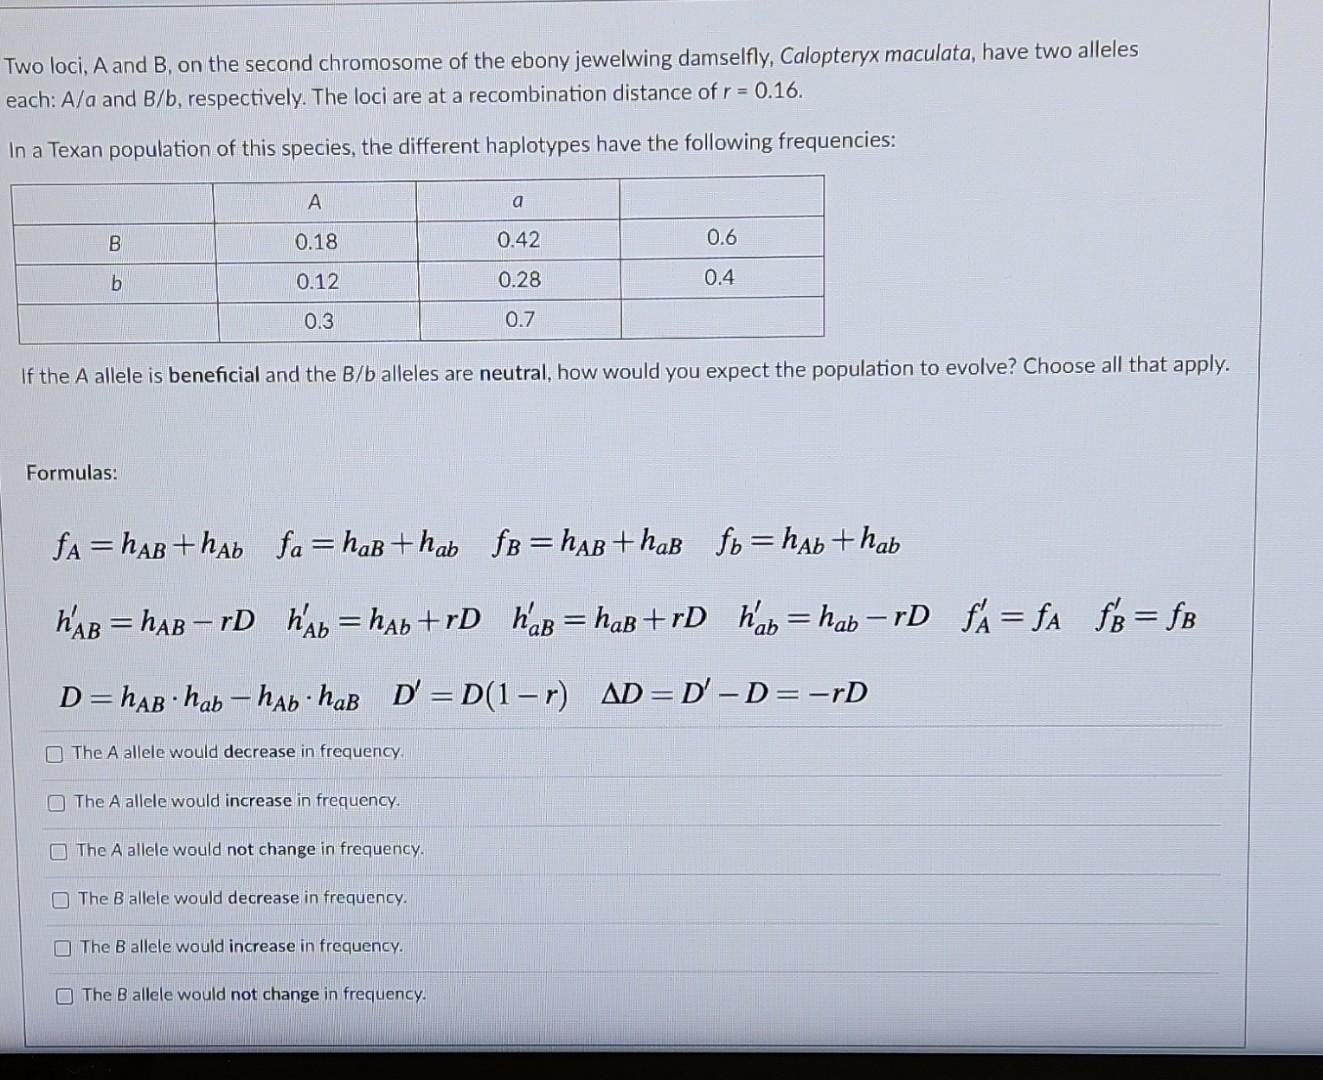 Two loci, A and B, on the second chromosome of the ebony jewelwing damselfly, Calopteryx maculata, have two alleles
each: A/a and B/b, respectively. The loci are at a recombination distance of r = 0.16.
In a Texan population of this species, the different haplotypes have the following frequencies:
A a
B 0.18 0.42 0.6
b 0.12 0.28 0.4
0.3 0.7
If the A allele is beneficial and the B/b alleles are neutral, how would you expect the population to evolve? Choose all that apply.
Formulas:
f_A = h_AB + h_Ab f_a = h_aB + h_ab f_B = h_AB + h_aB f_b = h_Ab + h_ab
h'_AB = h_AB − rD h'_Ab = h_Ab + rD h'_aB = h_aB + rD h'_ab = h_ab − rD f'_A = f_A f'_B = f_B
D = h_AB · h_ab − h_Ab · h_aB D' = D(1 − r) ΔD = D' − D = −rD
The A allele would decrease in frequency.
The A allele would increase in frequency.
The A allele would not change in frequency.
The B allele would decrease in frequency.
The B allele would increase in frequency.
The B allele would not change in frequency.